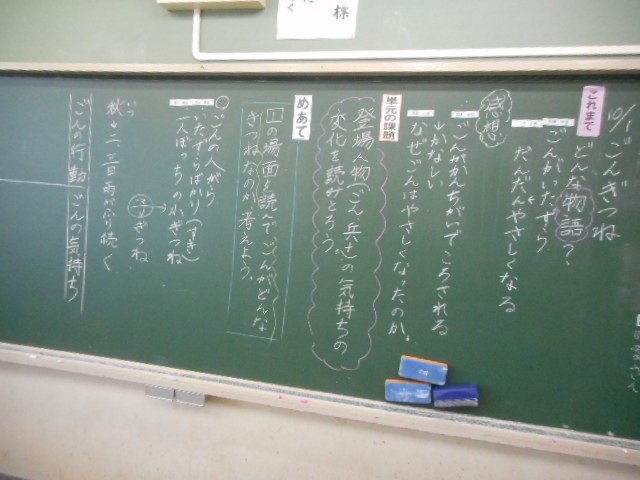 10/1 ごんぎつね
これまで
どんな物語？
ごんがいたずら
↓
だんだんやさしくなる
感想
ごんがかんちがいでころされる
↓かなしい
なぜごんはやさしくなったのか。
単元の課題
登場人物(ごん、兵十)の気持ちの
変化を読みとろう。
めあて
1の場面を読んで、ごんがどんな
きつねなのか考えよう。
○ごんの人がら
いたずらばかり(すき)
一人ぼっちの小ぎつね
→子ぎつね
いつ
秋 二、三日雨がふり続く
ごんの行動 ごんの気持ち
様